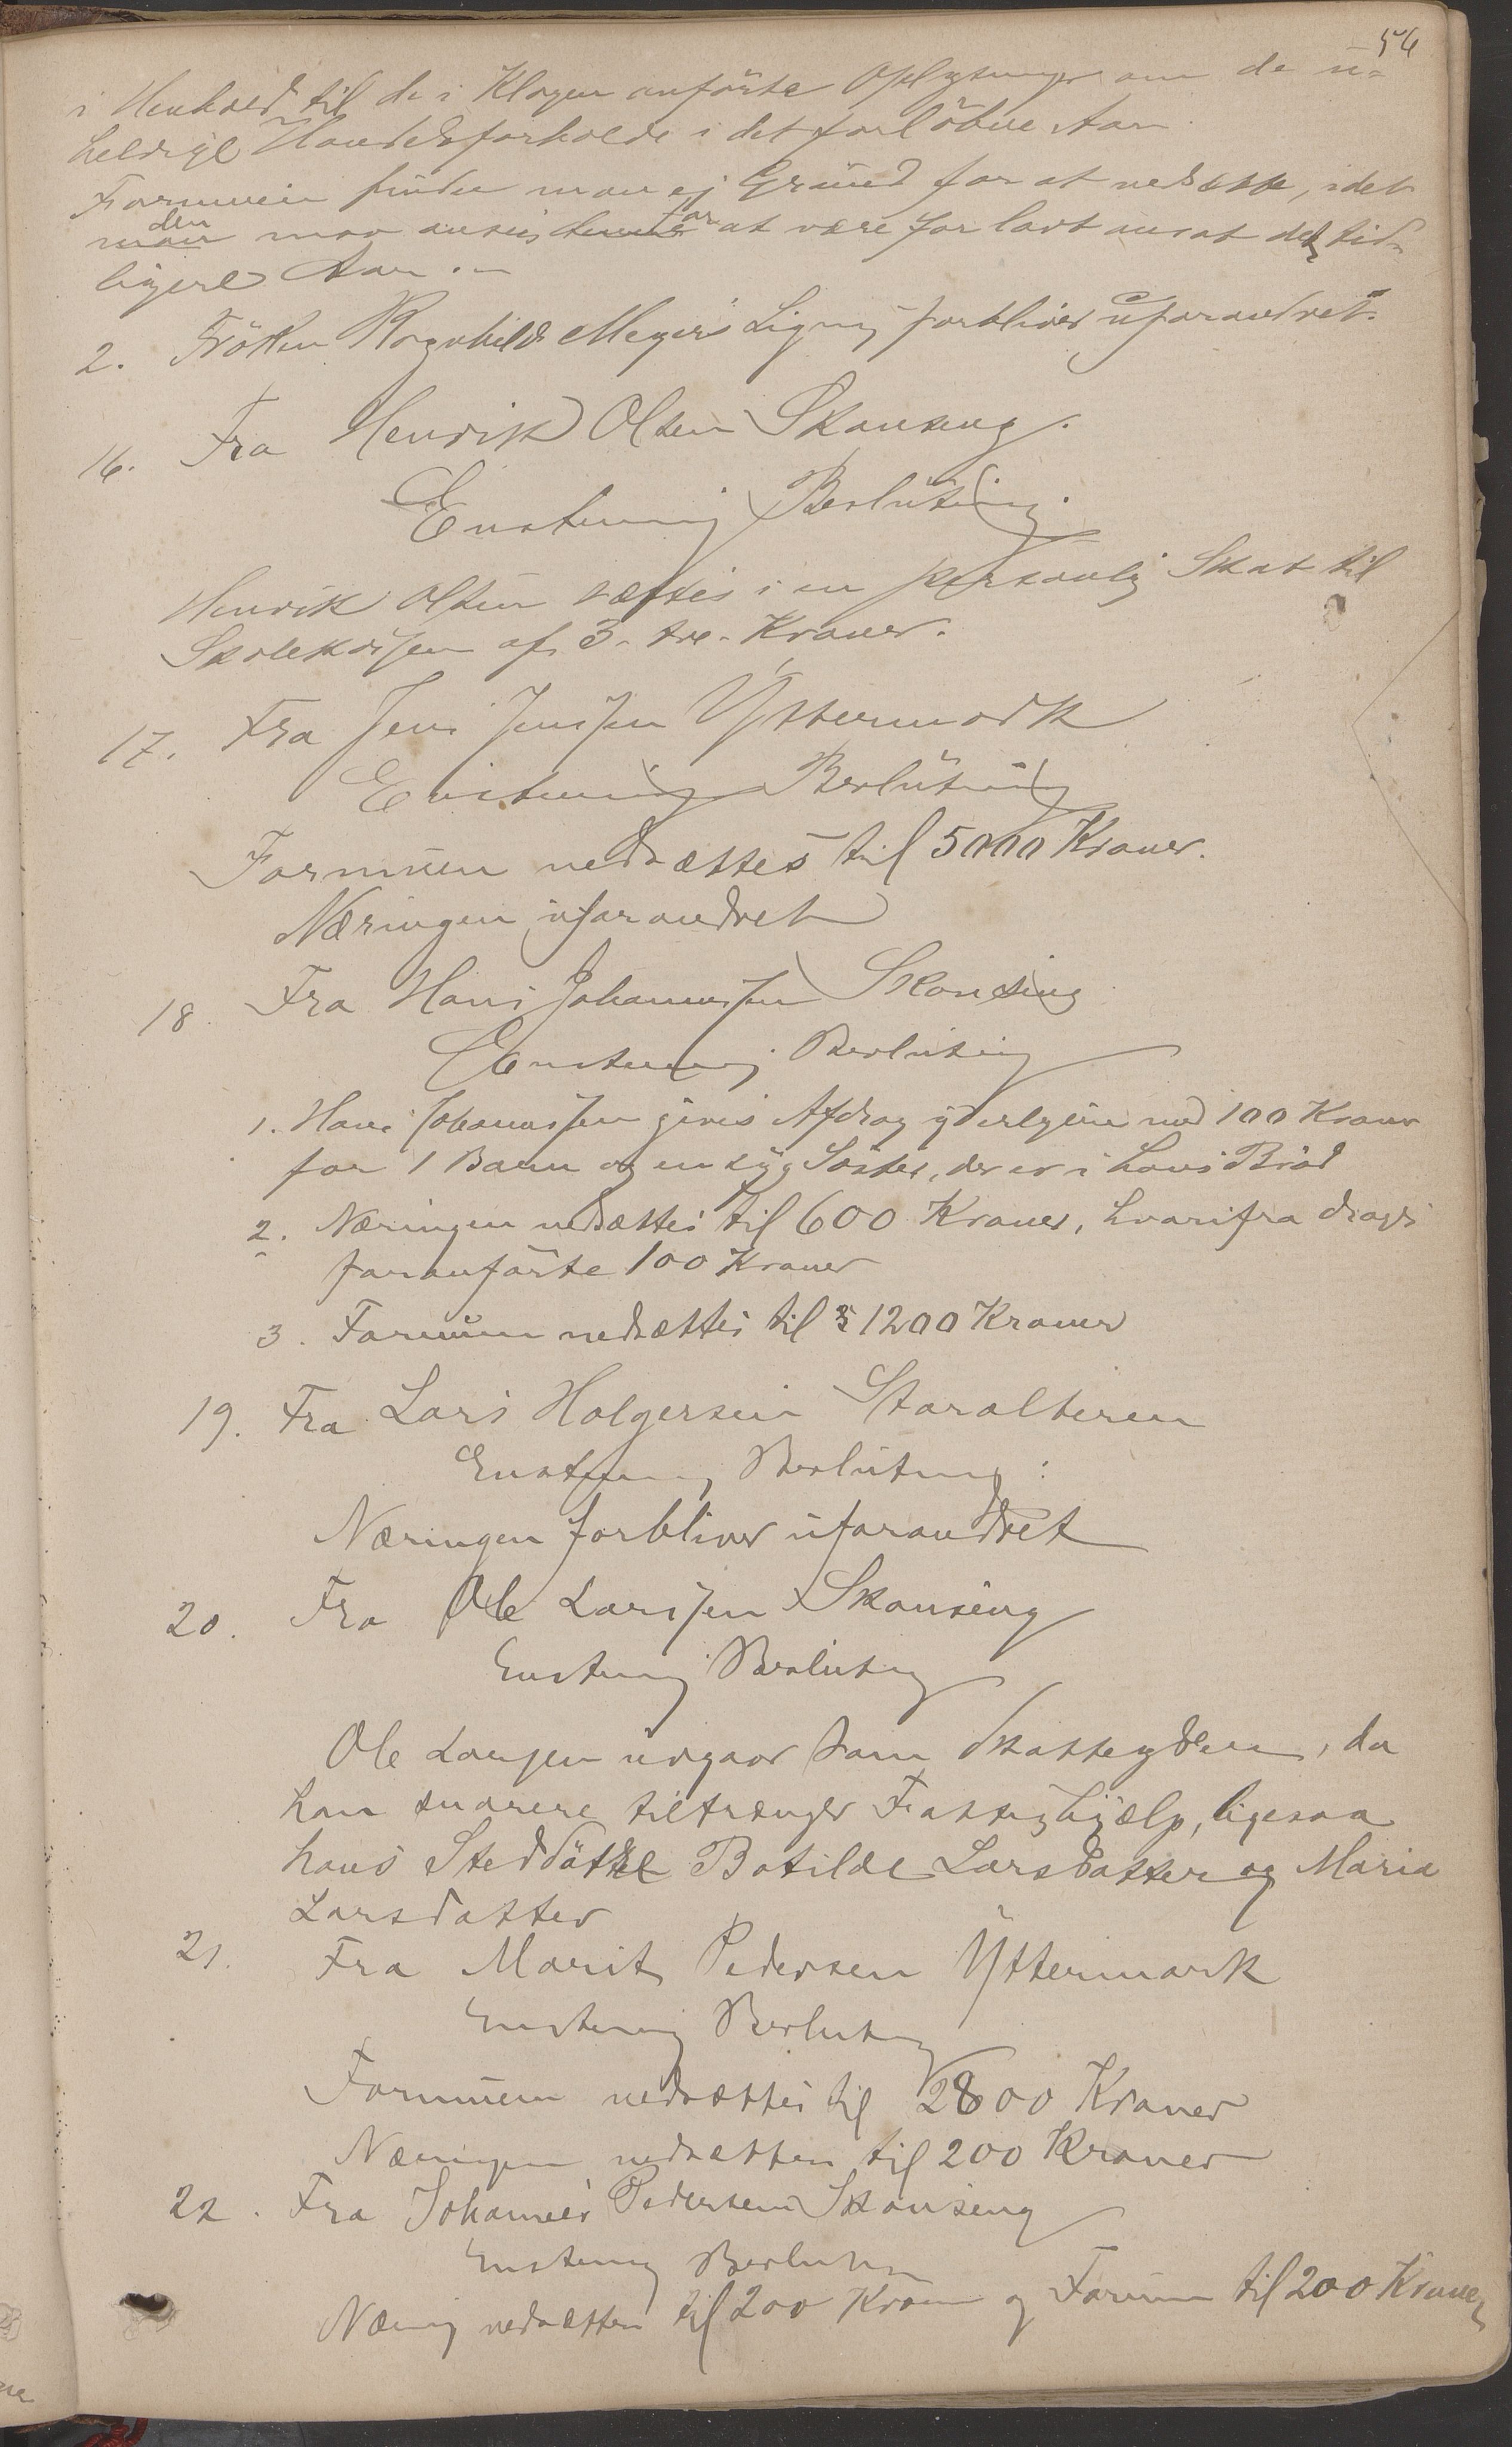 56
i Henhold til de i Klagen anførte Oplysninger om de u-
heldige Handelsforholde i det forløbne Aar.
Formuen finder man ej Grund for at nedsætte, idet
den maa ansees for at være for lavt ansat de tid-
ligere Aar.
2. Frøken Ragnhild Meyers Ligning forbliver uforandret.
16. Fra Henrik Olsen Skonseng.
Enstemmig Beslutning.
Henrik Olsen sættes i en personlig Skat til
Skolekassen af 3 - tre - Kroner.
17. Fra Jens Jensen Yttermark
Enstemmig Beslutning
Formuen nedsættes til 5000 Kroner.
Næringen uforandret
18. Fra Hans Johannessen Skonseng
Enstemmig Beslutning
1. Hans Johannessen gives Afdrag yderligere med 100 Kroner
for 1 Barn og en syg Søster, der er i hans Brød
2. Næringen nedsættes til 600 Kroner, hvorifra drages
foranførte 100 Kroner
3. Formuen nedsættes til 1200 Kroner
19. Fra Lars Holgersen Storalteren
Enstemmig Beslutning:
Næringen forbliver uforandret
20. Fra Ole Larssen Skonseng
Enstemmig Beslutning
Ole Larssen udgaar som Skatteyder, da
han snarere tiltrænger Fattighjælp, ligesaa
hans Steddøttre Botilde Larsdatter og Maria
Larsdatter
21. Fra Marit Pedersen Yttermark
Enstemmig Beslutning
Formuen nedsættes til 2800 Kroner
Næringen nedsættes til 200 Kroner
22. Fra Johannes Pedersen Skonseng
Enstemmig Beslutning
Næring nedsættes til 200 Kroner og Formue til 200 Kroner